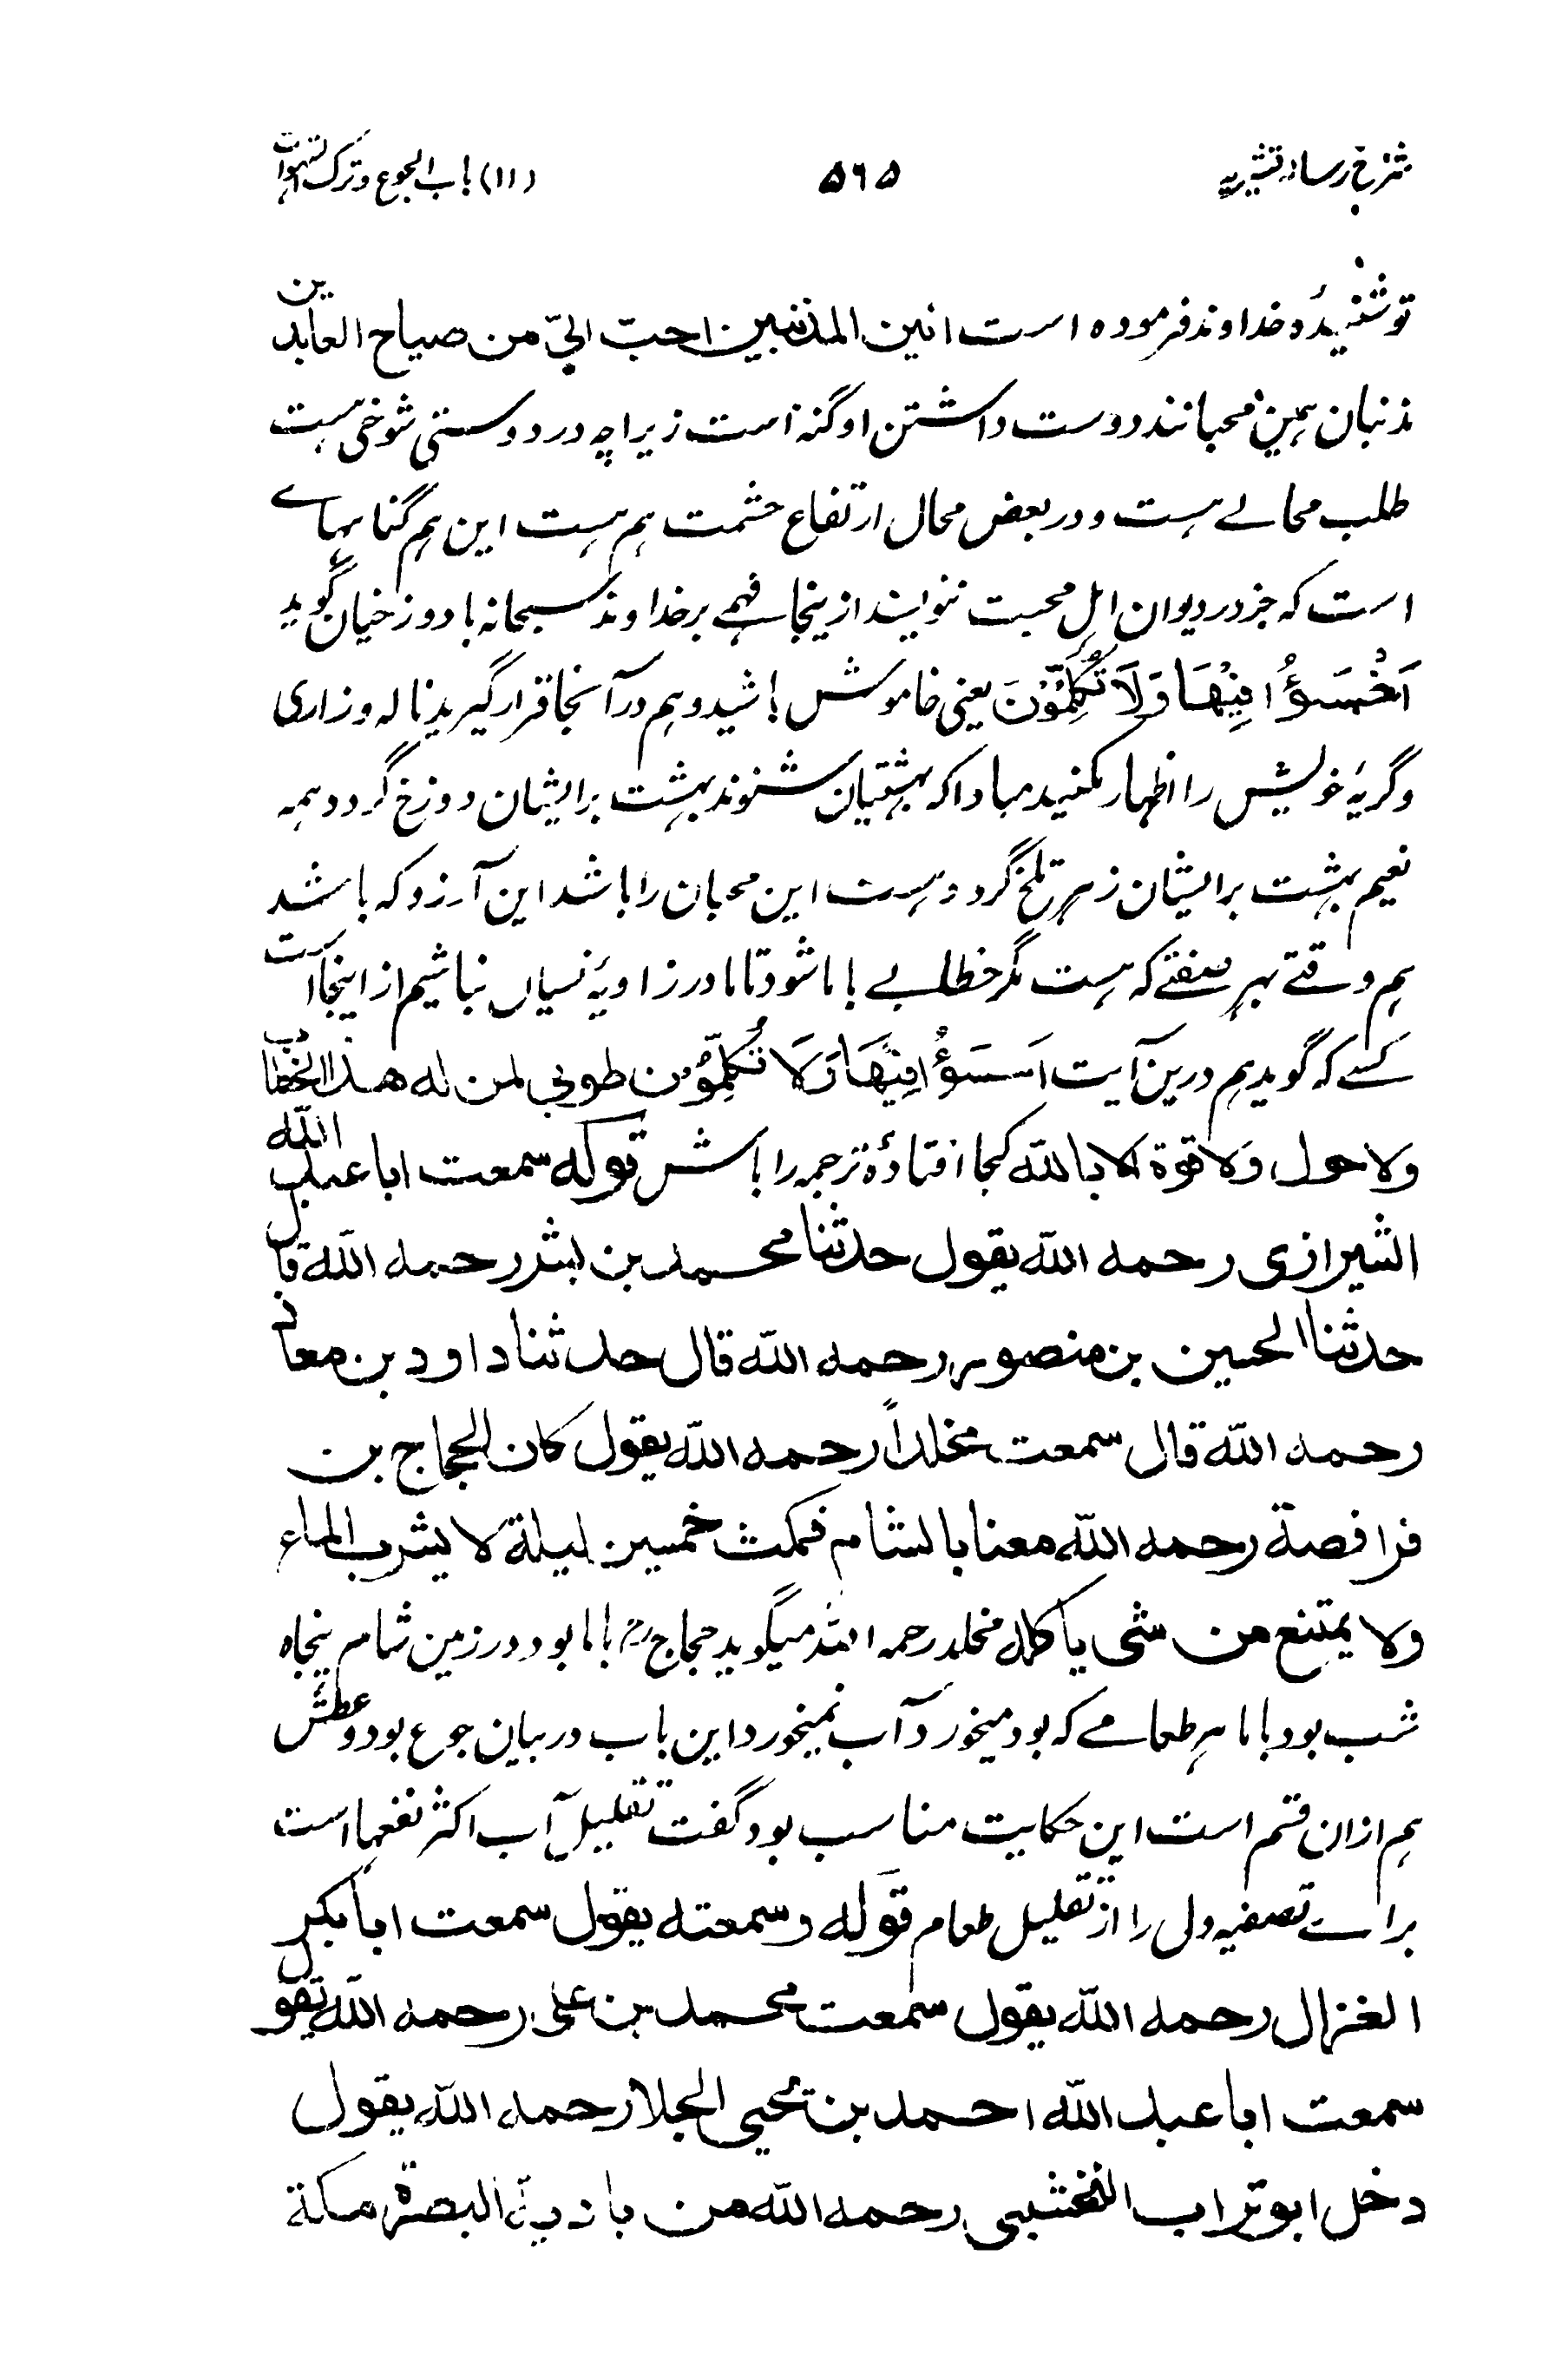 شرح رسالہ قشیریہ ۵۶۵ (۱۱) باب الجوع و ترک الشہوات
تو شنیدۂ خداوند فرمودہ است انین المذنبین احبّ الیّ من صیاح العابدین
مذنبان ہمین محبانند دوست داشتن او گنہ است زیراچہ در دوستی شوخی ہست
طلب محالے ہست و در بعض محال ارتفاع حشمت ہم ہست این ہم گناہہاے
است کہ جز در دیوان اہل محبت ننوایند ازینجا فہمے بر خداوند سبحانہ با دوزخیان گوید
اَخْسَؤُا فِيْهَا وَلَا تُكَلِّمُوْنَ یعنی خاموش باشید و ہم در آنجا قرار گیرید نالہ و زاری
و گریۂ خویش را اظہار مکنید مبادا کہ بہشتیان شنوند بہشت بر ایشان دوزخ گردد ہمہ
نعیم بہشت بر ایشان زہر تلخ گردد ہست این محبان را باشد این آرزو کہ باشد
ہم وقتے بہر صفتے کہ ہست مگر خطابے با ما شود تا ما در زاویۂ نسیاں نباشیم از اینجا است
کسے کہ گوید ہم درین آیت اَسَسَؤُا فِيْهَا وَلَا تُكَلِّمُوْن طوبی لمن له هذا الخطاب
ولا حول ولا قوة الا بالله کجا افتادۂ ترجمہ را باش قوله سمعت ابا عبد الله
الشیرازی رحمه الله یقول حدثنا محمد بن بشر رحمه الله قال
حدثنا الحسین بن منصور رحمه الله قال حدثنا داود بن معاذ
رحمه الله قال سمعت مخلداً رحمه الله یقول کان الحجاج بن
فرافصة رحمه الله معنا بالشام فمکث خمسین لیلة لا یشرب الماء
ولا یمتنع من شی یاکله مخلد رحمہ اللہ میگوید حجاج رح با ما بود در زمین شام پنجاہ
شب بود با ما ہر طعامے کہ بود میخورد آب نمیخورد این باب در بیان جوع بود و عطش
ہم ازان قسم است این حکایت مناسب بود گفت تقلیل آب اکثر نفعہا است
براے تصفیہ دلی را از تقلیل طعام قوله وسمعته یقول سمعت ابا بکر
الغزال رحمه الله یقول سمعت محمد بن علی رحمه الله یقول
سمعت ابا عبد الله احمد بن یحیی الجلا رحمه الله یقول
دخل ابو تراب النخشبی رحمه الله من بادیة البصرة مکة